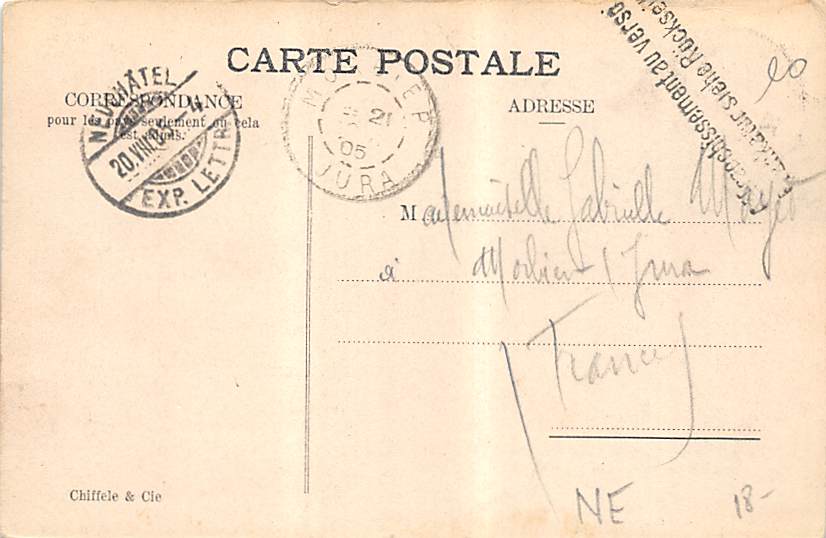 CARTE POSTALE
CORRESPONDANCE
pour les pays seulement où cela
est admis.
ADRESSE
NEUCHÂTEL
20.VIII.05
EXP. LETTR.
21
05
JURA
Affranchissement au verso
Frankatur siehe Rückseite
20
Mademoiselle Gabrielle
à Morbier (Jura
(France)
Chiffele & Cie
NE
18-